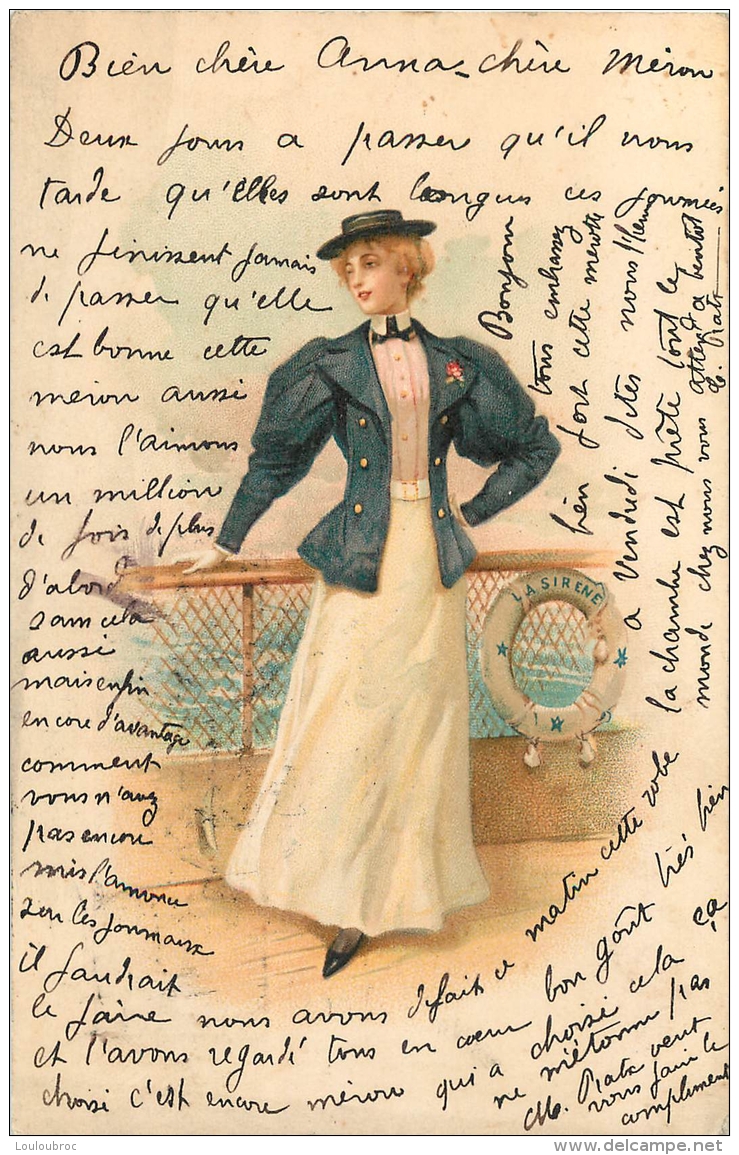 Bien chère Anna - chère Méron
Deux jours a passer qu'il nous
tarde qu'elles sont longues ces journées
ne finissent jamais
de passer qu'elle
est bonne cette
meron aussi
nous l'aimons
un million
de fois de plus
d'abord
sans cela
aussi
mais enfin
encore d'avantage
comment
vous n'avez
pas encore
mis l'annonce
sur les journaux
il faudrait
le faire nous avons défait ce matin cette robe
et l'avons regardé tous en cœur bon goût très bien
choisi c'est encore méron qui a choisi cela ça
ne m'étonne pas
M. Ratx veut
vous faire le
compliment
Bonjour
tous embrassez
bien fort cette merotte
a Vendredi dites nous l'heure
la chambre est prête tout le
monde chez nous vous attend a bentot
LA SIRENE
Louloubroc
www.delcampe.net